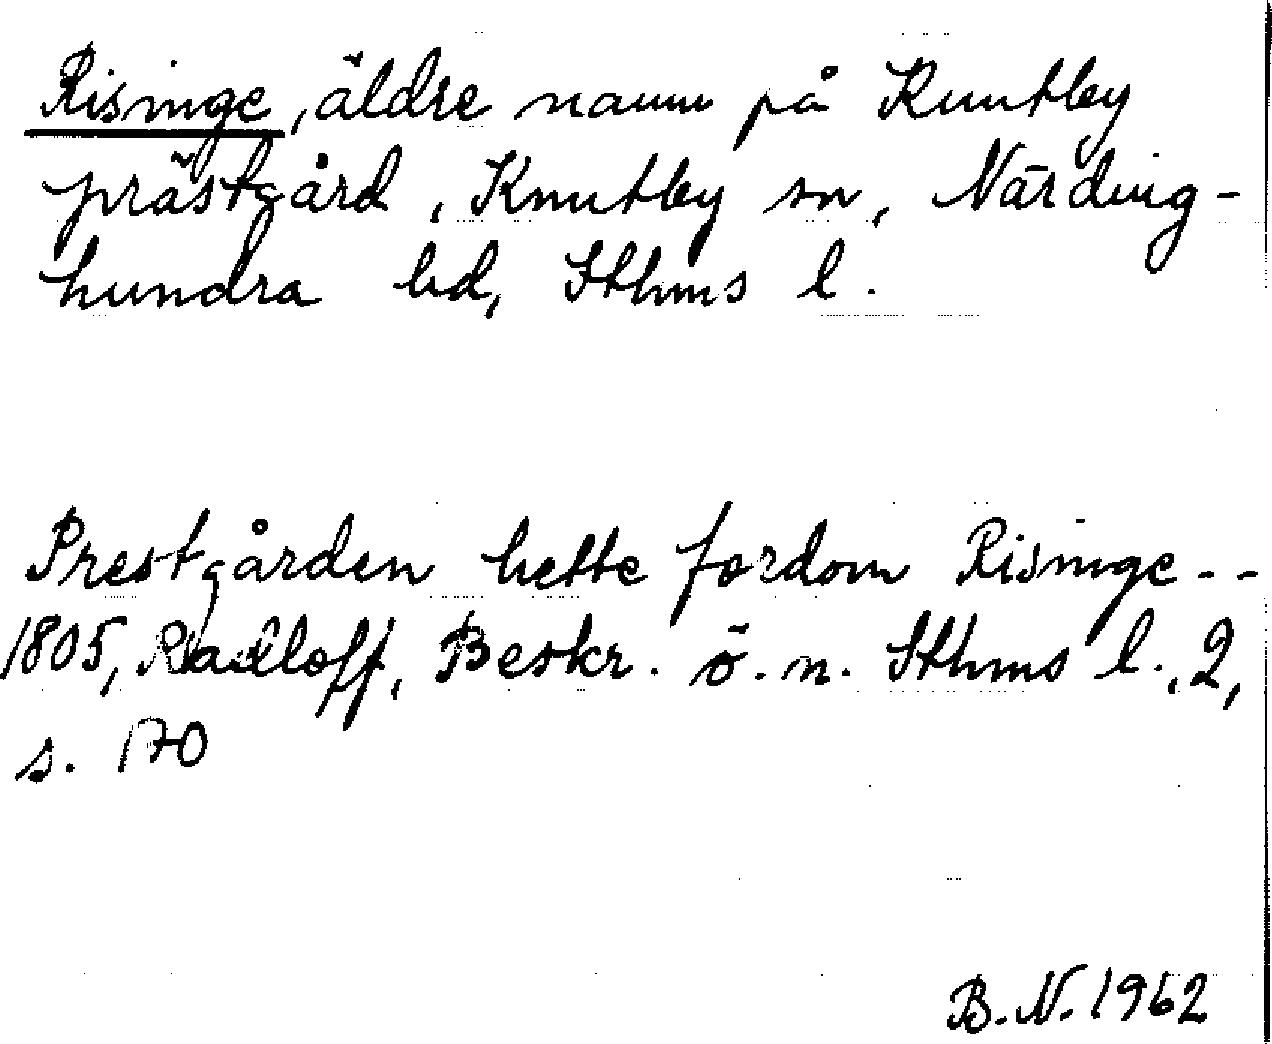 Risinge, äldre namn på Knutby
prästgård, Knutby sn, Närding-
hundra hd, Sthms l.
Prestgården hette fordom Risinge--
1805, Radloff, Beskr. ö. n. Sthms l., 2,
s. 170
B. N. 1962